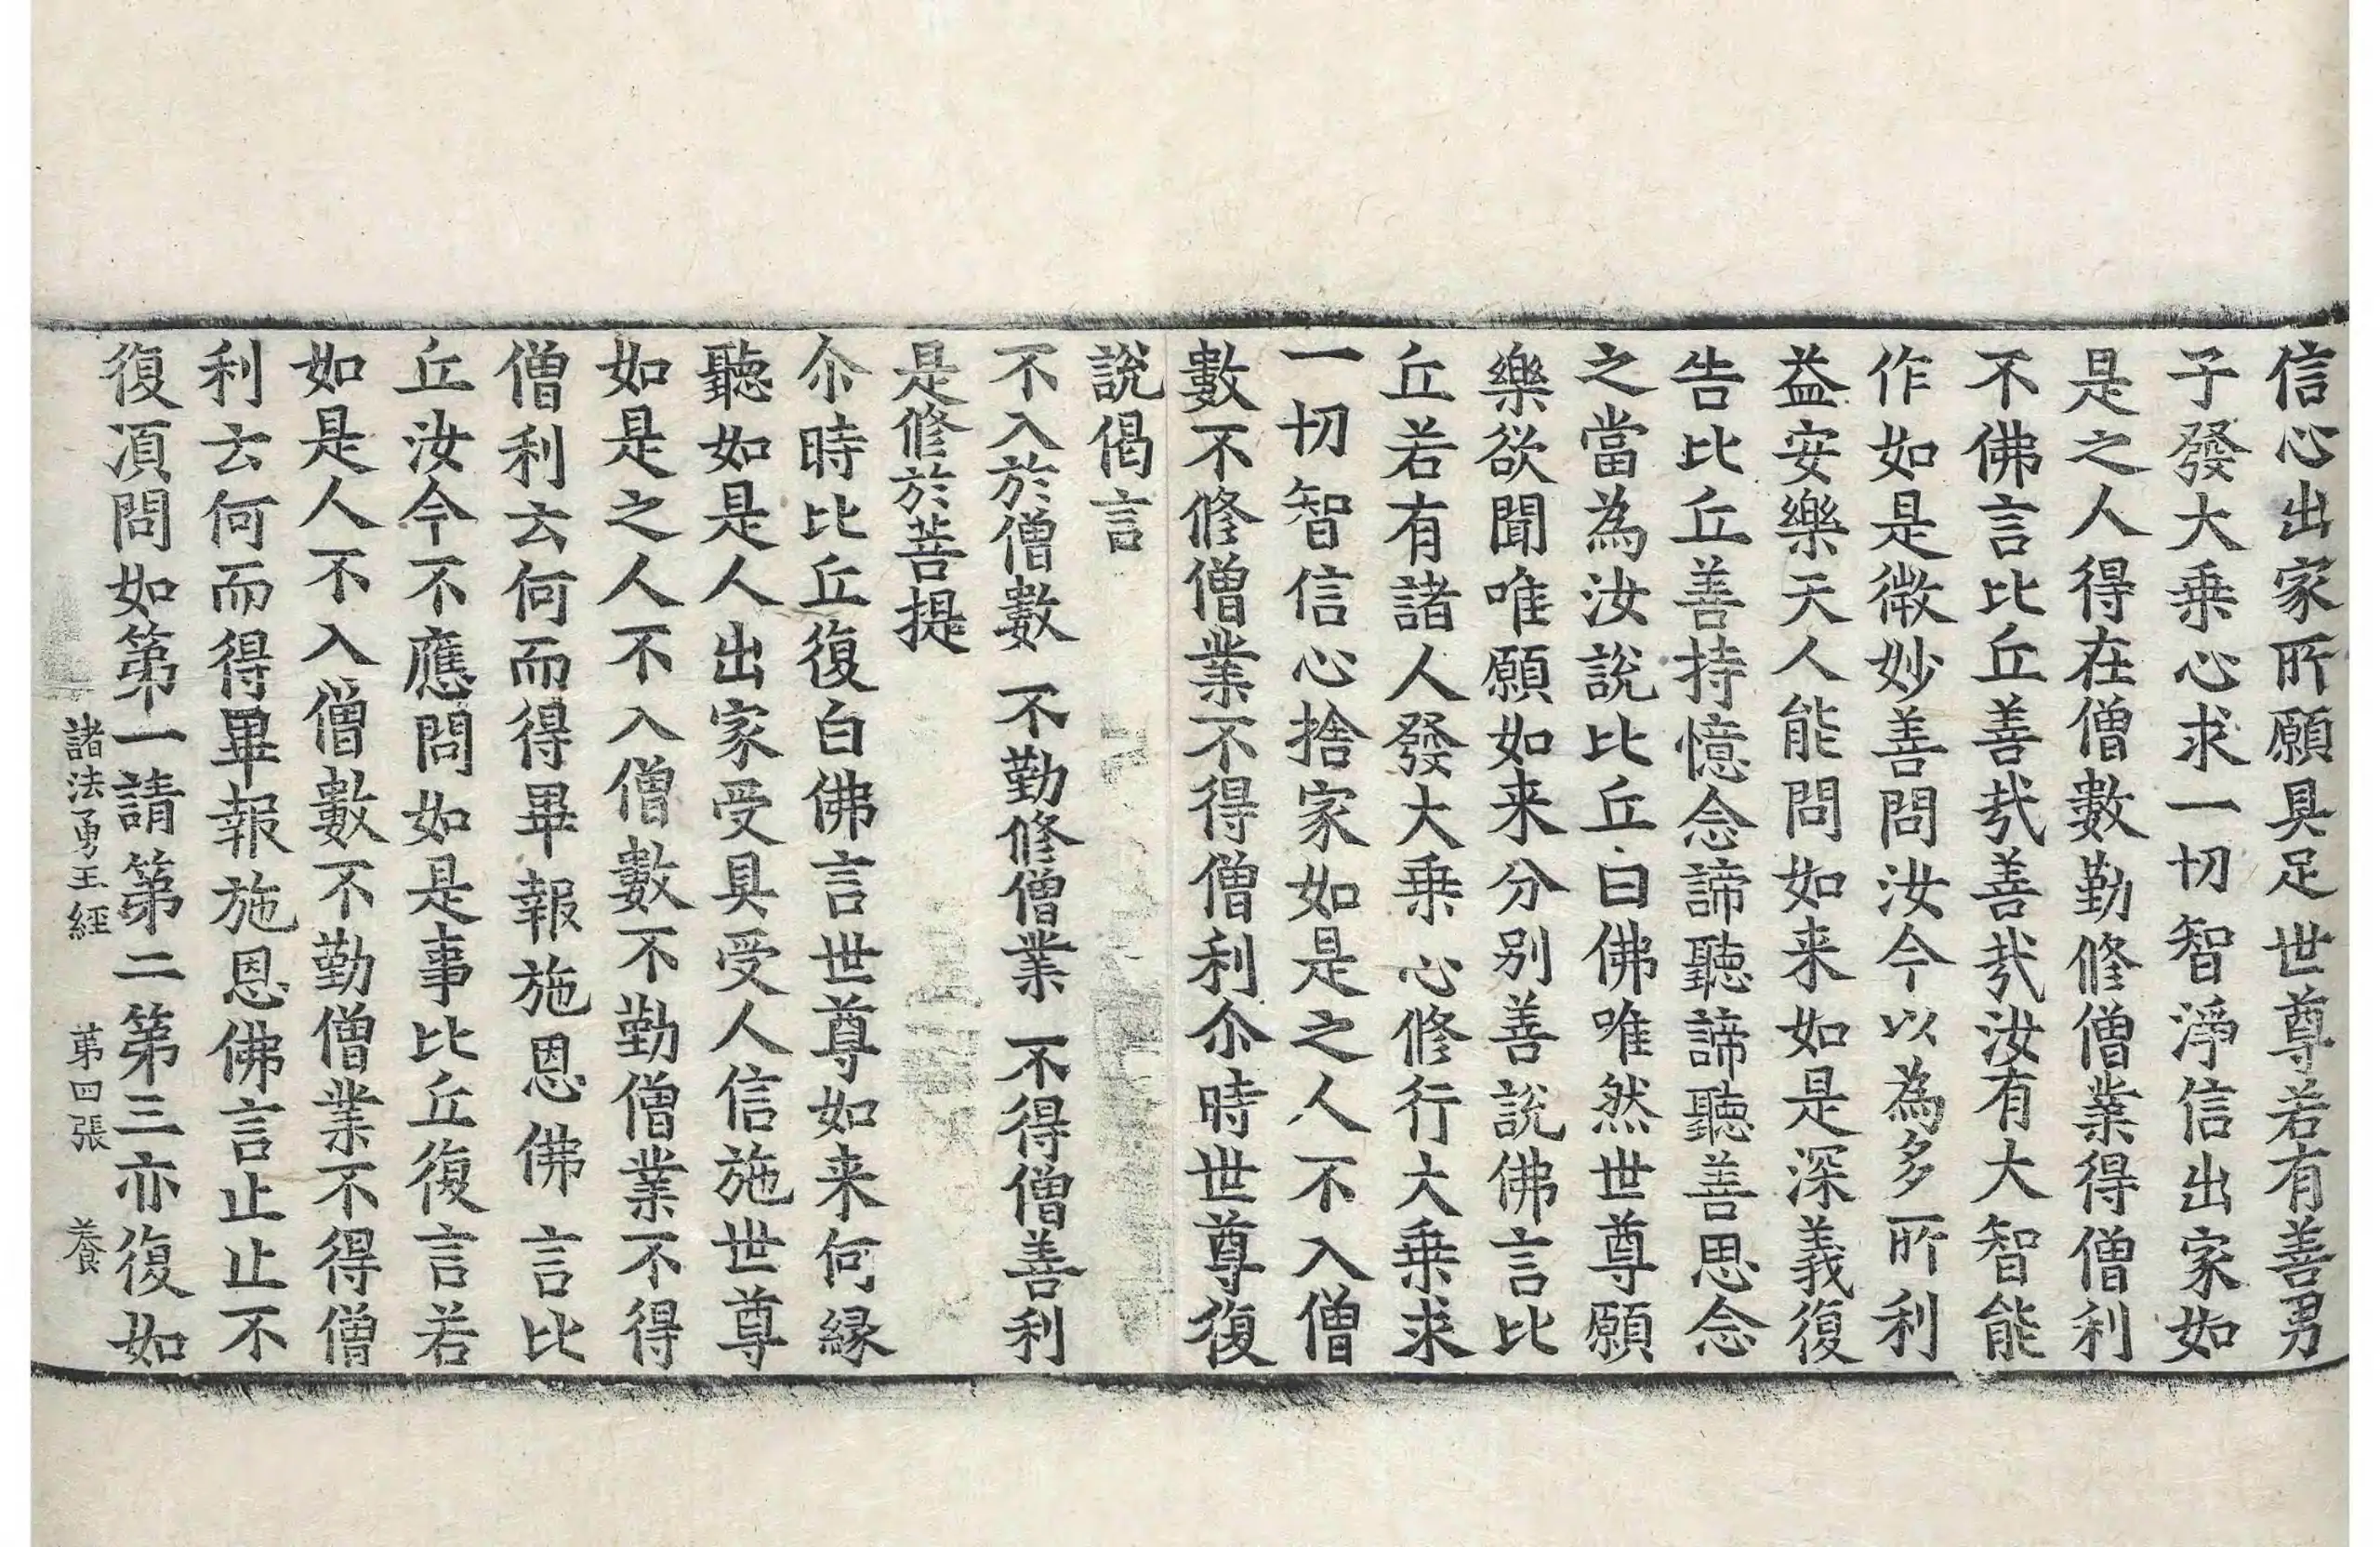 信心出家所願具足世尊若有善男
子發大乗心求一切智淨信出家如
是之人得在僧數勤修僧業得僧利
不佛言比丘善㢤善㢤汝有大智能
作如是微妙善問汝今以為多所利
益安樂天人能問如来如是深義復
告比丘善持憶念諦聽諦聽善思念
之當為汝說比丘白佛唯然世尊願
樂欲聞唯願如来分别善說佛言比
丘若有諸人發大乗心修行大乗求
一切智信心捨家如是之人不入僧
數不修僧業不得僧利尒時世尊復
說偈言
不入於僧數 不勤修僧業 不得僧善利
是修於菩提
尒時比丘復白佛言世尊如来何縁
聽如是人出家受具受人信施世尊
如是之人不入僧數不勤僧業不得
僧利云何而得畢報施恩佛言比
丘汝今不應問如是事比丘復言若
如是人不入僧數不勤僧業不得僧
利云何而得畢報施恩佛言止止不
復湏問如第一請第二第三亦復如
諸法勇王經 苐四張 養